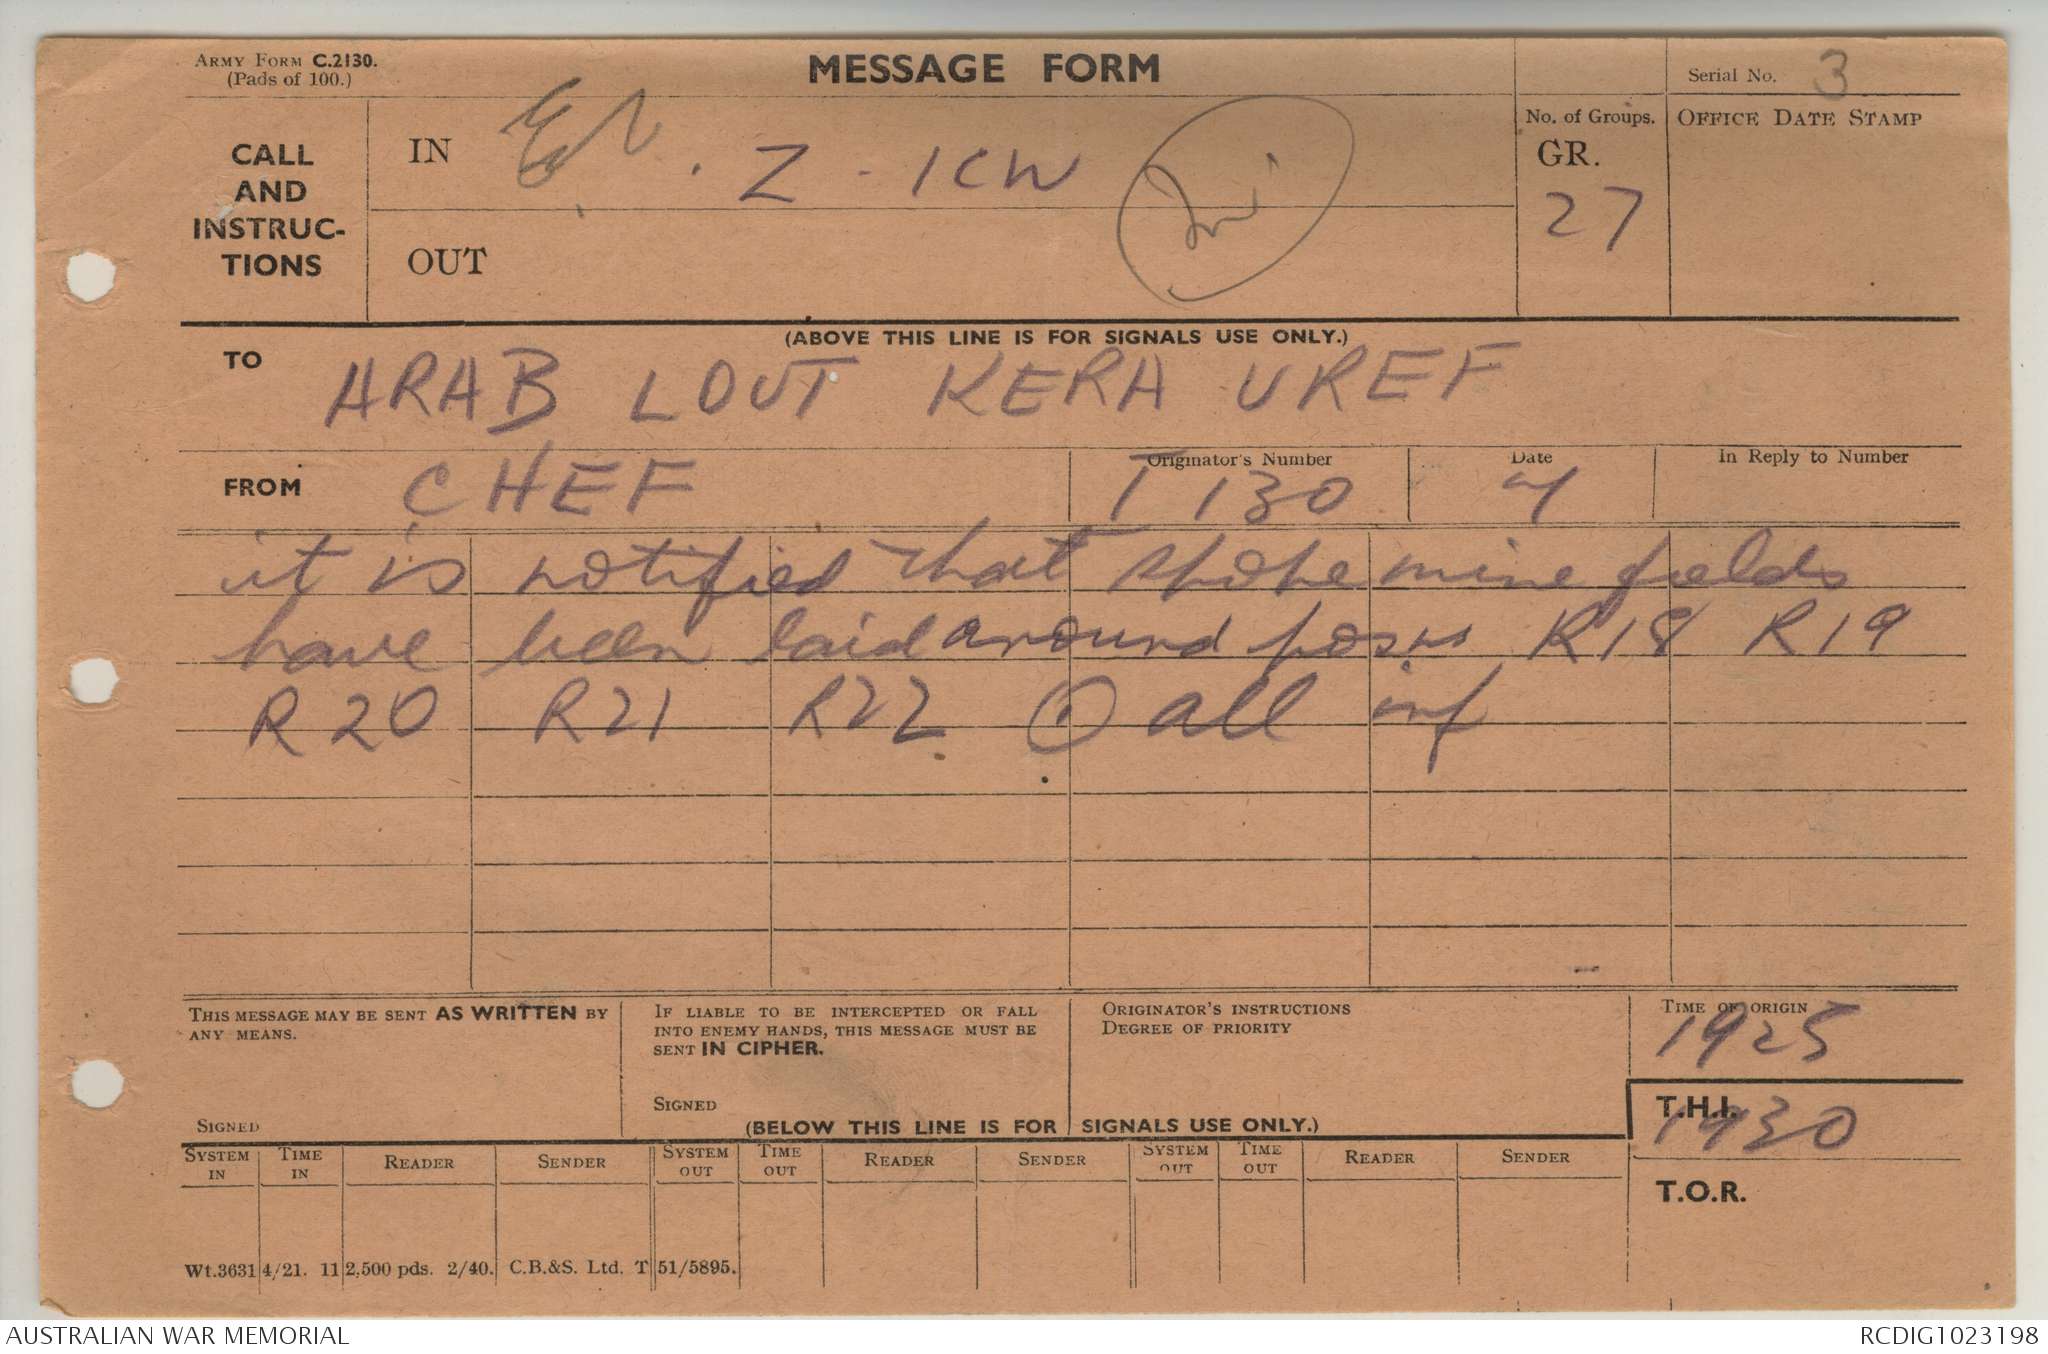 ARMY FORM C.2130.
(Pads of 100.)
MESSAGE FORM
Serial No. 3
CALL AND INSTRUC-TIONS
IN . Z . ICW
OUT
No. of Groups.
GR.
27
OFFICE DATE STAMP
(ABOVE THIS LINE IS FOR SIGNALS USE ONLY.)
TO ARAB LOUT KERA UREF
FROM CHEF
Originator's Number
T 130
Date
4
In Reply to Number
it is notified that mine fields
have been laid around posns R18 R19
R20 R21 R22 all inf
THIS MESSAGE MAY BE SENT AS WRITTEN BY
ANY MEANS.
SIGNED
IF LIABLE TO BE INTERCEPTED OR FALL
INTO ENEMY HANDS, THIS MESSAGE MUST BE
SENT IN CIPHER.
SIGNED
ORIGINATOR'S INSTRUCTIONS
DEGREE OF PRIORITY
TIME OF ORIGIN
1925
(BELOW THIS LINE IS FOR SIGNALS USE ONLY.)
T.H.I.
1930
T.O.R.
SYSTEM IN TIME IN READER SENDER SYSTEM OUT TIME OUT READER SENDER SYSTEM OUT TIME OUT READER SENDER
Wt.3631 4/21. 112,500 pds. 2/40. C.B.&S. Ltd. T 51/5895.
AUSTRALIAN WAR MEMORIAL
RCDIG1023198